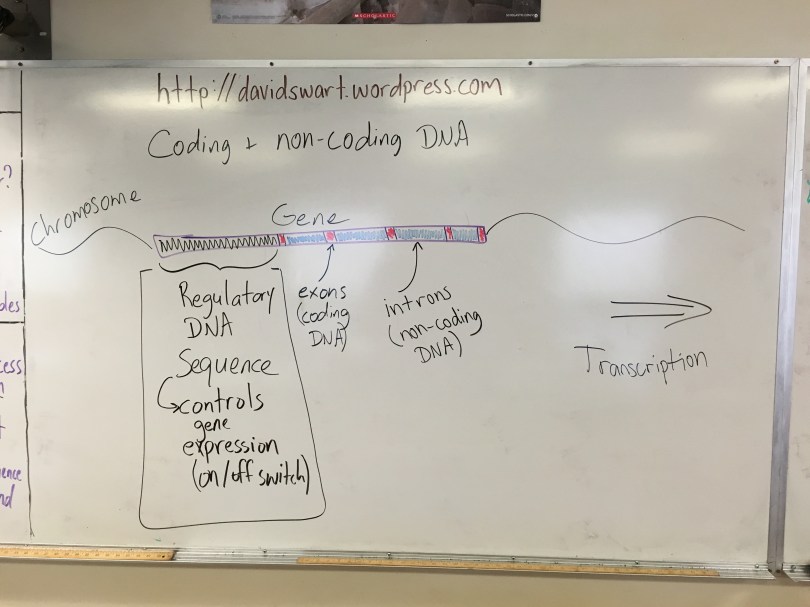 SCHOLASTIC
http://davidswart.wordpress.com
Coding + non-coding DNA
Chromosome
Gene
Regulatory
DNA
Sequence
controls
gene
expression
(on/off switch)
exons
(coding
DNA)
introns
(non-coding
DNA)
Transcription
?
les
cess
ence
nd